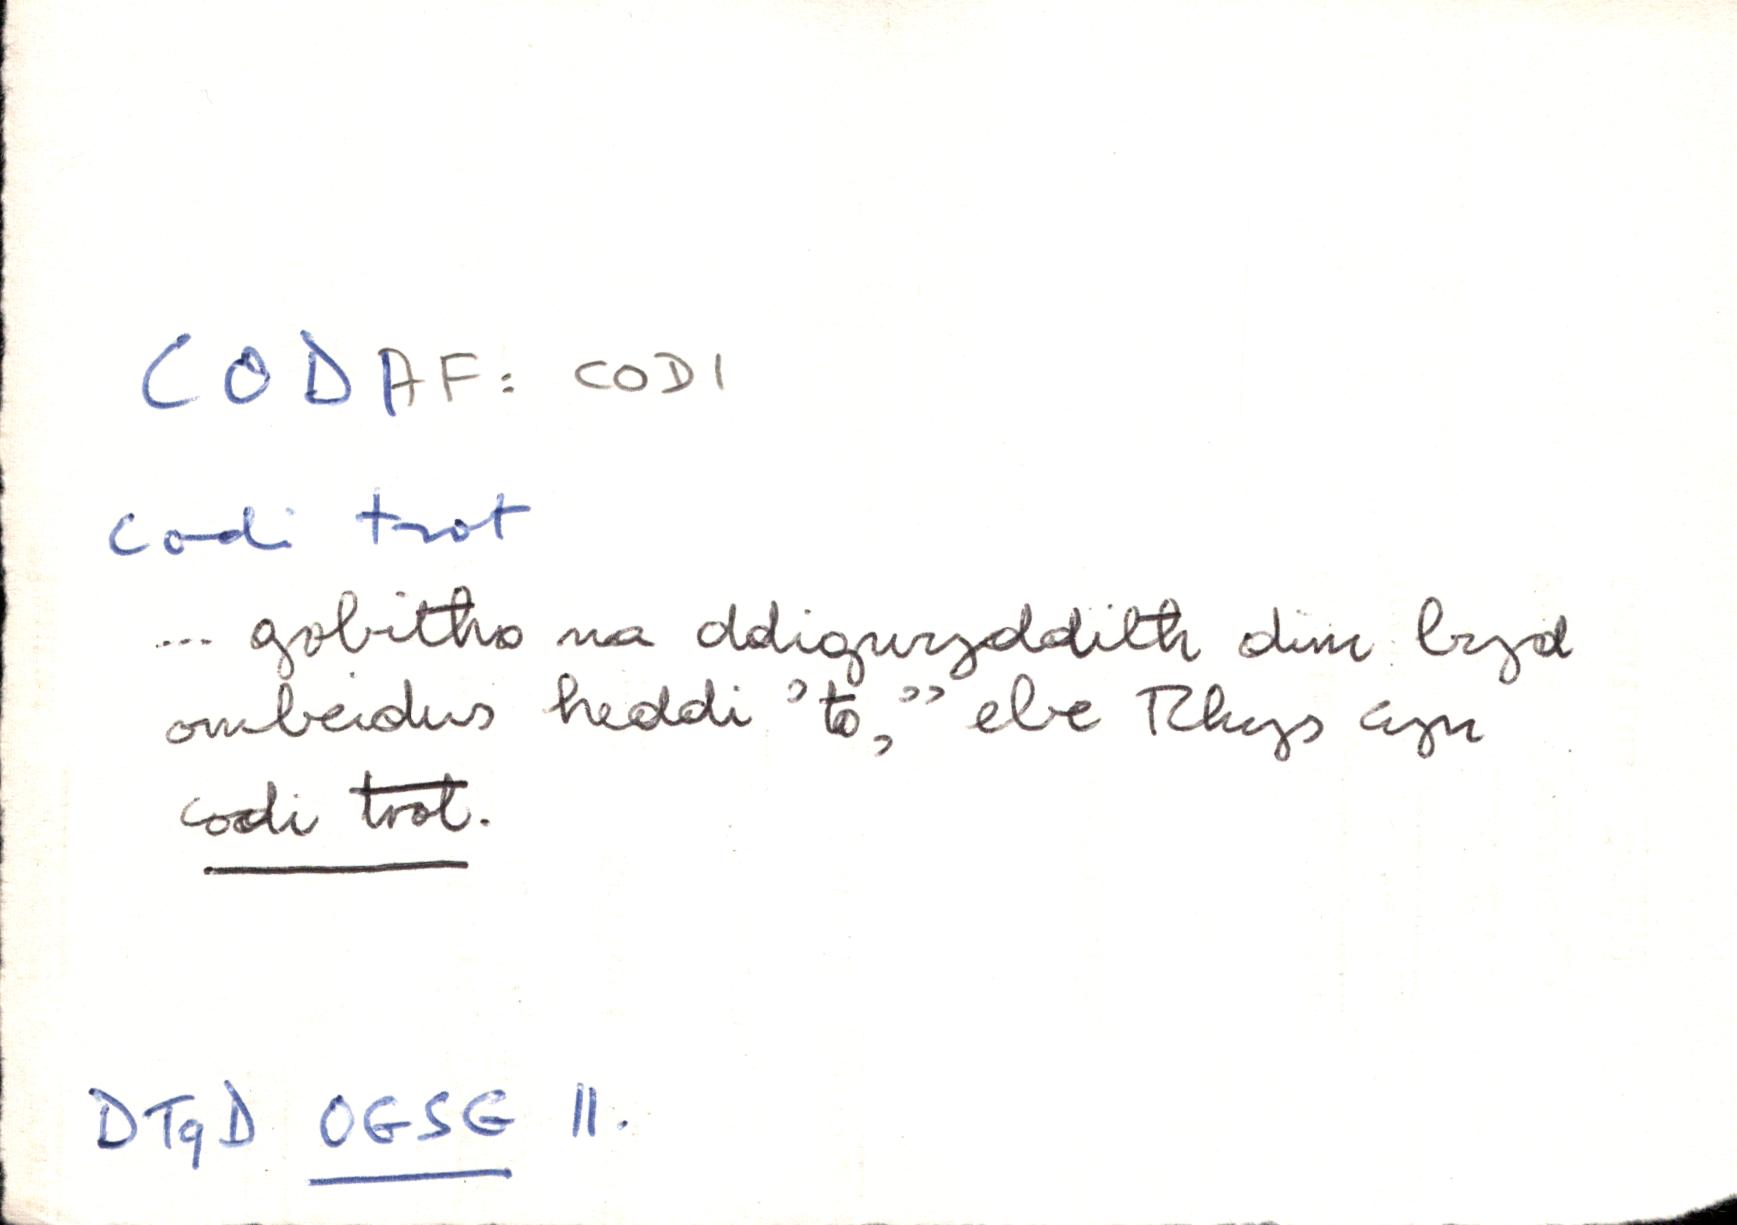 CODAF: CODI
codi trot
... gobitho na ddigwyddith dim byd
ombeidus heddi 'to," ebe Rhys cyn
codi trot.
DTqD OGSG 11.